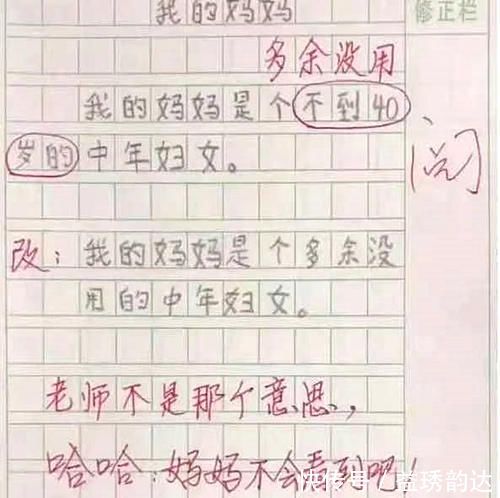 我的妈妈
修正栏
多余没用
我的妈妈是个不到40
岁的中年妇女。
阅
改：我的妈妈是个多余没
用的中年妇女。
老师不是那个意思，
哈哈，妈妈不会看到吧！
快传号／益琇韵达